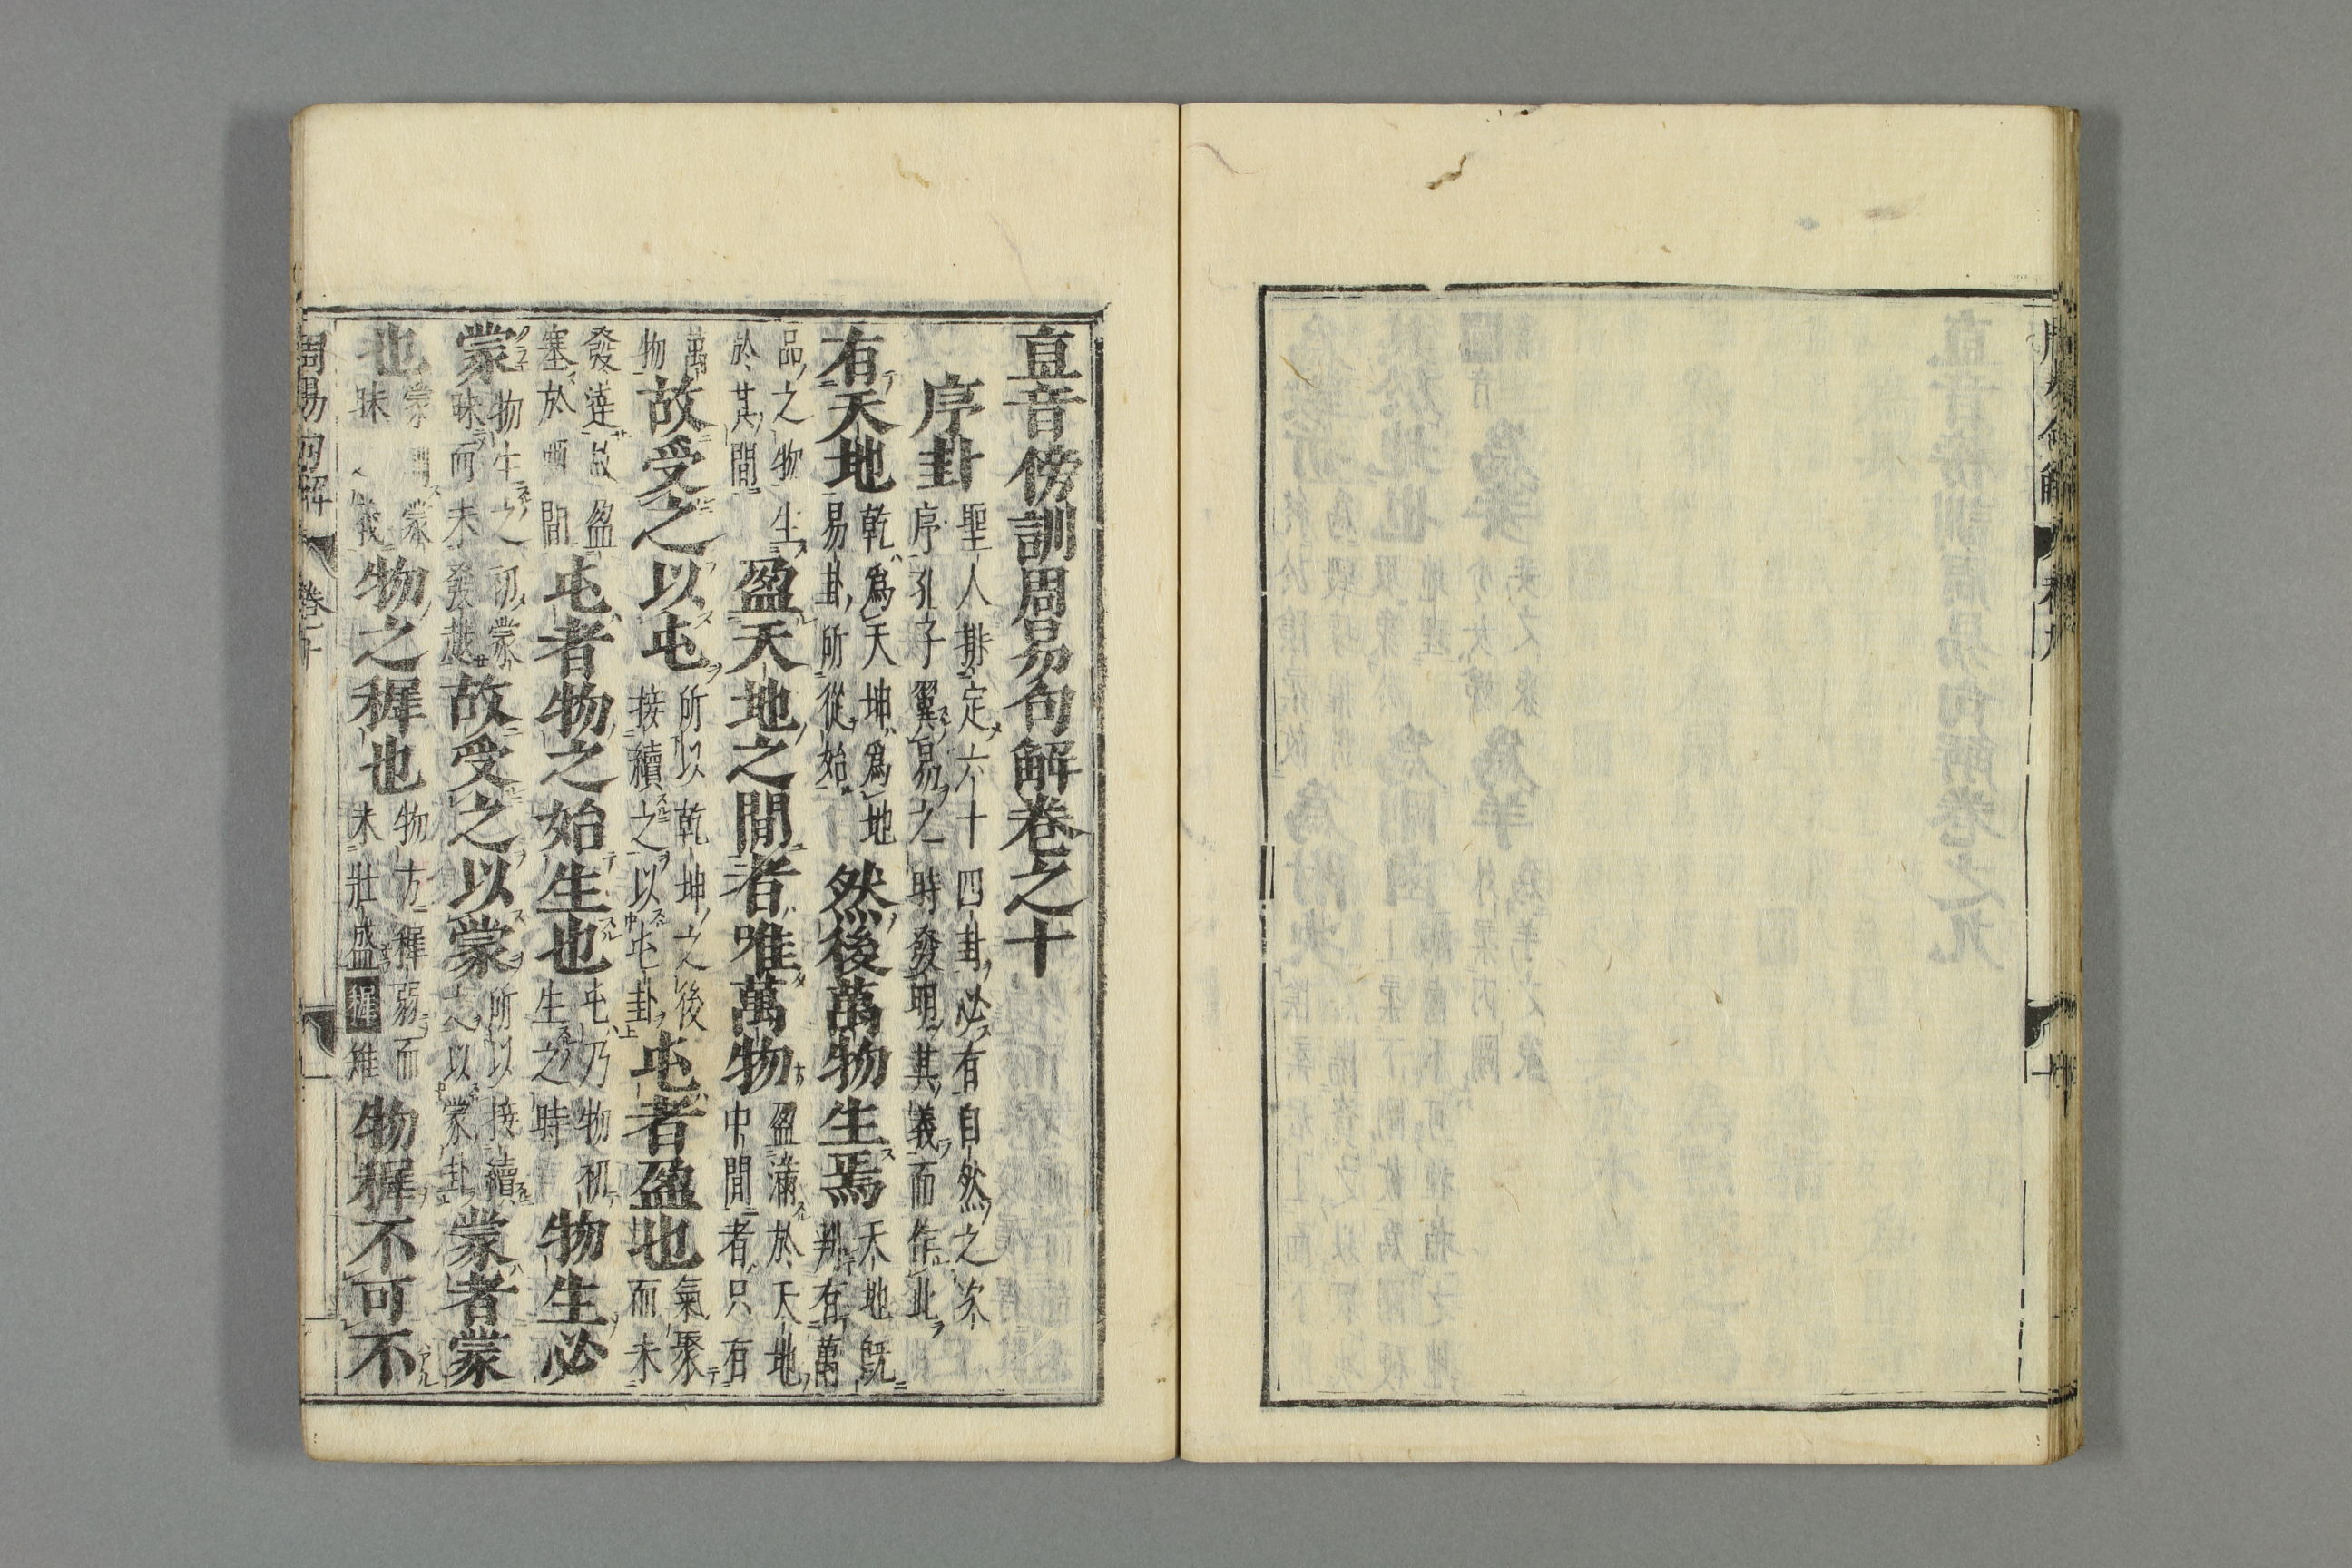 直音傍訓周易句解卷之十
序卦 聖人排定六十四卦必有自然之次
序孔子翼易之時發明其義而作此
有天地 乾爲天坤爲地
易卦所從始
然後萬物生焉 天地既
判有萬
品之物生
於其間
盈天地之間者唯萬物 盈滿於天地
中間者只有
萬
物
故受之以屯 所以乾坤之後
接續之以屯卦
屯者盈也 氣聚
而未
發達故盈
塞於兩間
屯者物之始生也 屯乃物初
生之時
物生必
蒙 物生之初蒙
昧而未發越
故受之以蒙 所以接續
之以蒙卦
蒙者蒙
也 蒙訓蒙
昧之義
物之穉也 物方穉弱而
未壯盛 穉 雉
物穉不可不
周易句解 卷十 一